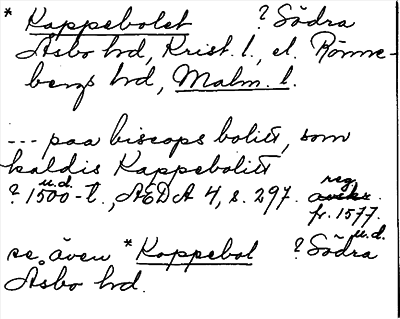 * Kappebolet ? Södra
Åsbo hd, Krist. l., el. Rönne-
bergs hd, Malm. l.
--- paa biscops bolitt, som
kaldis Kappebolitt
? 1500-t. u.d., ÆDA 4, s. 297. reg.
fr. 1577.
u.d.
se även * Kappebol ? Södra
Åsbo hd.